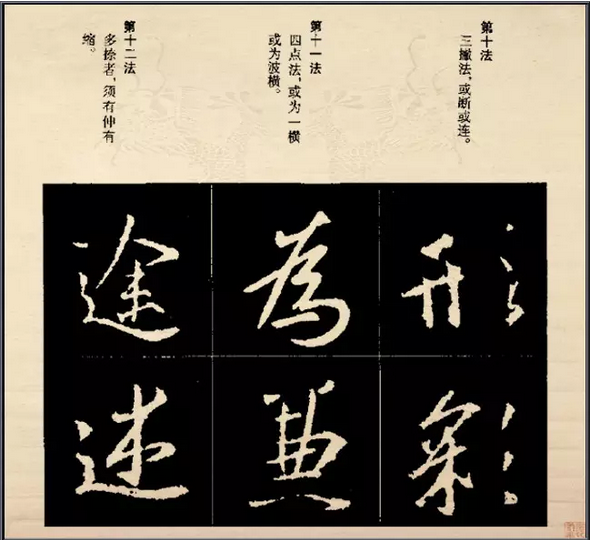 第十法
三撇法，或断或连。
第十一法
四点法，或为一横
或为波横。
第十二法
多捺者，须有伸有
缩。
形彩
為
途